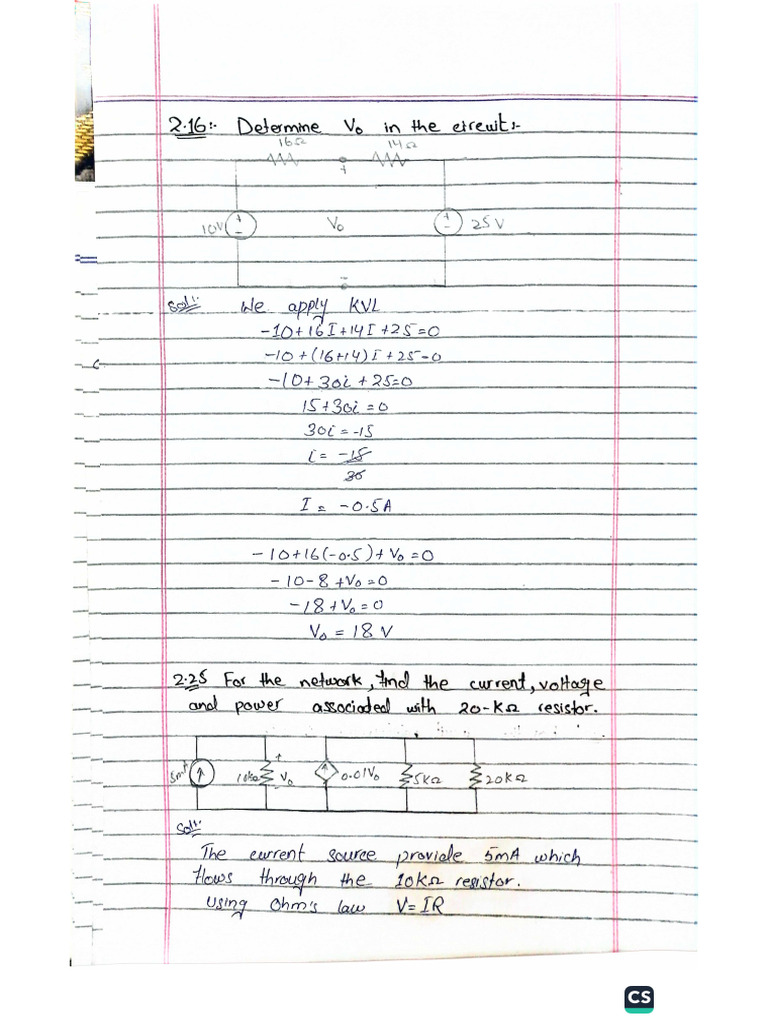 2.16:- Determine Vo in the circuit:-
16Ω 14Ω
+
10V + - Vo + - 25V
-
Sol:- We apply KVL
-10+16I+14I+25=0
-10+(16+14)I+25=0
-10+30i+25=0
15+30i=0
30i=-15
i= -15
30
I = -0.5A
-10+16(-0.5)+Vo=0
-10-8+Vo=0
-18+Vo=0
Vo = 18 V
2.25 For the network, find the current, voltage
and power associoded with 20-KΩ resistor.
5mA 10kΩ + Vo - 0.01Vo 5KΩ 20KΩ
Sol:-
The current source provide 5mA which
flows through the 10KΩ resistor.
Using Ohm's law V=IR
CS